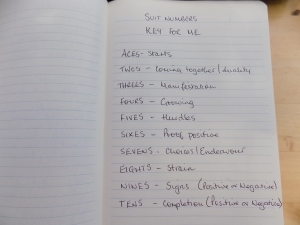 SUIT NUMBERS
KEY FOR ME
ACES - Starts
TWOS - Coming together / duality
THREES - Manifestation
FOURS - Growing
FIVES - Hurdles
SIXES - Proof positive
SEVENS - Choices / Endeavour
EIGHTS - Strain
NINES - Signs (Positive or Negative)
TENS - Completion (Positive or Negative)